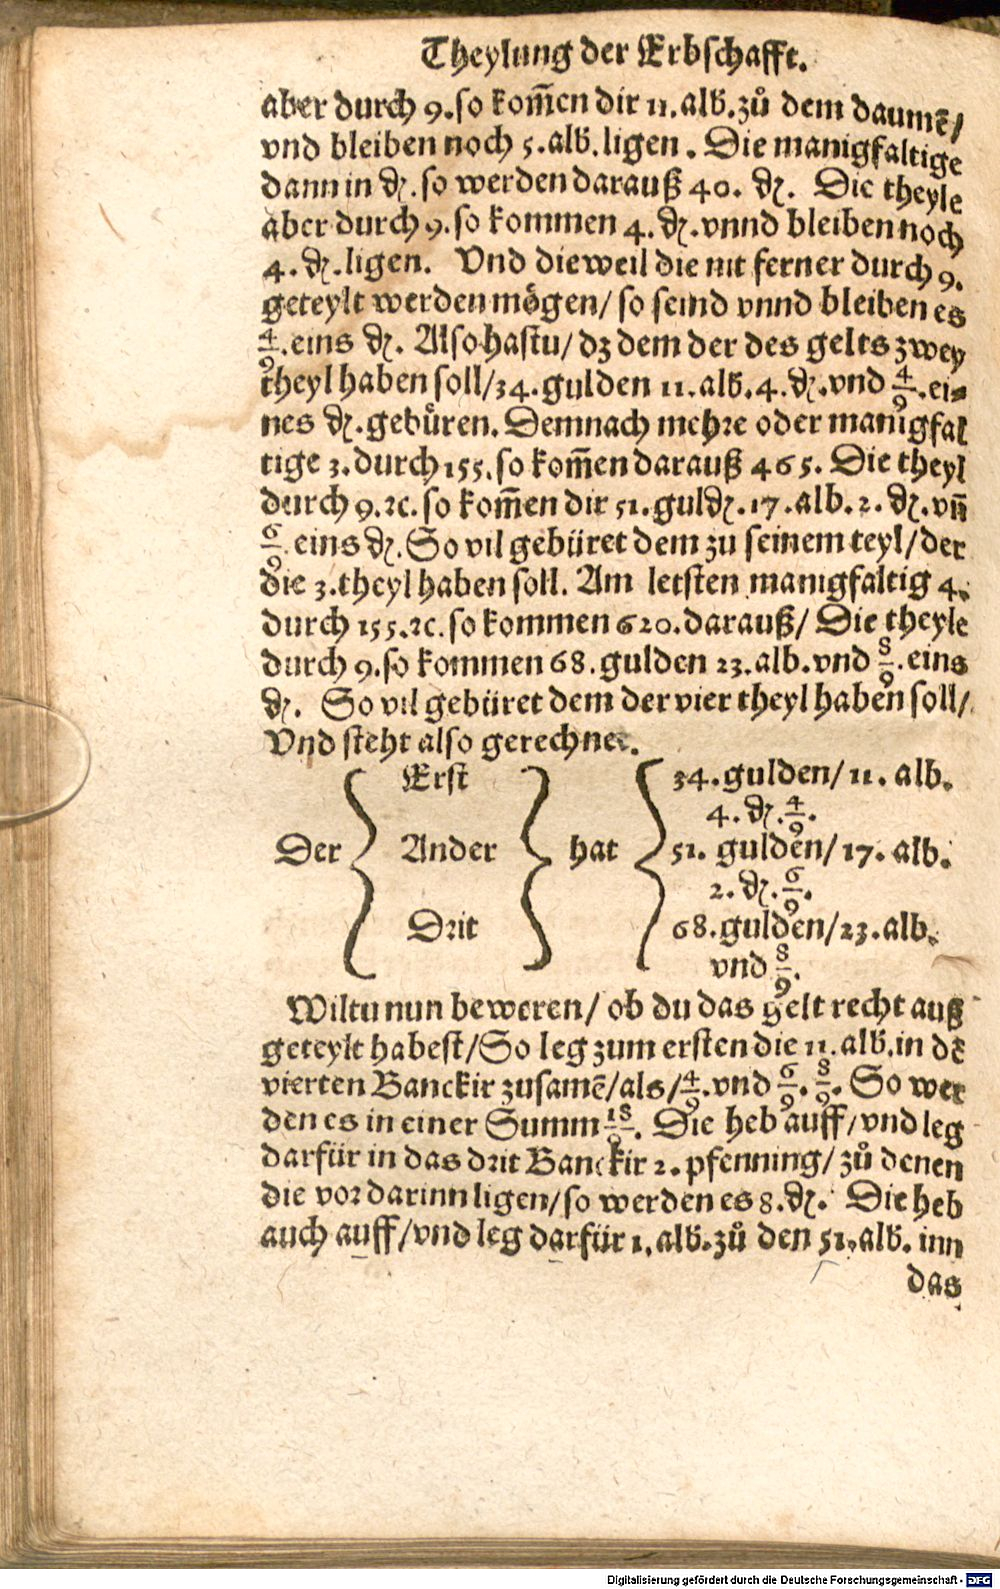 Theylung der Erbschafft.
aber durch 9. so kom̄en dir 11. alb. zů dem daumẽ/
vnd bleiben noch 5. alb. ligen. Die manigfaltige
dann in ₰. so werden darauß 40. ₰. Die theyle
aber durch 9. so kommen 4. ₰. vnnd bleiben noch
4. ₰. ligen. Vnd dieweil die nit ferner durch 9.
geteylt werden mögen/ so seind vnnd bleiben es
4/9. eins ₰. Also hastu/ dz dem der des gelts zwey
theyl haben soll/ 34. gulden 11. alb. 4. ₰. vnd 4/9. ei=
nes ₰. gebüren. Demnach mehre oder manigfal
tige 3. durch 155. so kom̄en darauß 465. Die theyl
durch 9. ꝛc. so kom̄en dir 51. guld₰. 17. alb. 2. ₰. vn̄
6/9. eins ₰. So vil gebüret dem zu seinem teyl/ der
die 3. theyl haben soll. Am letsten manigfaltig 4.
durch 155. ꝛc. so kommen 620. darauß/ Die theyle
durch 9. so kommen 68. gulden 23. alb. vnd 8/9. eins
₰. So vil gebüret dem der vier theyl haben soll/
Vnd steht also gerechnet.
Erst 34. gulden/ 11. alb.
4. ₰. 4/9.
Der Ander hat 51. gulden/ 17. alb.
2. ₰. 6/9.
Drit 68. gulden/ 23. alb.
vnd 8/9.
Wiltu nun beweren/ ob du das gelt recht auß
geteylt habest/ So leg zum ersten die 11. alb. in dẽ
vierten Banckir zusamẽ/ als/ 4/9. vnd 6/9. 8/9. So wer
den es in einer Summ 18/9. Die heb auff/ vnd leg
darfür in das drit Banckir 2. pfenning/ zů denen
die vor darinn ligen/ so werden es 8. ₰. Die heb
auch auff/ vnd leg darfür 1. alb. zů den 51. alb. inn
das
Digitalisierung gefördert durch die Deutsche Forschungsgemeinschaft - DFG